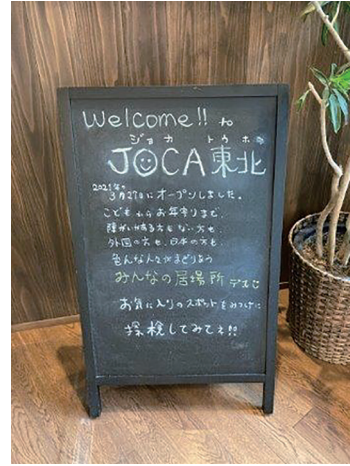 Welcome!! to
ジョカ トウホク
JOCA東北
2021年
3月27日にオープンしました。
こどもからお年寄りまで、
障がいがある方もない方も、
外国の方も、日本の方も、
色んな人がまざりあう
みんなの居場所デス
お気に入りのスポットをみつけに
探検してみてネ!!